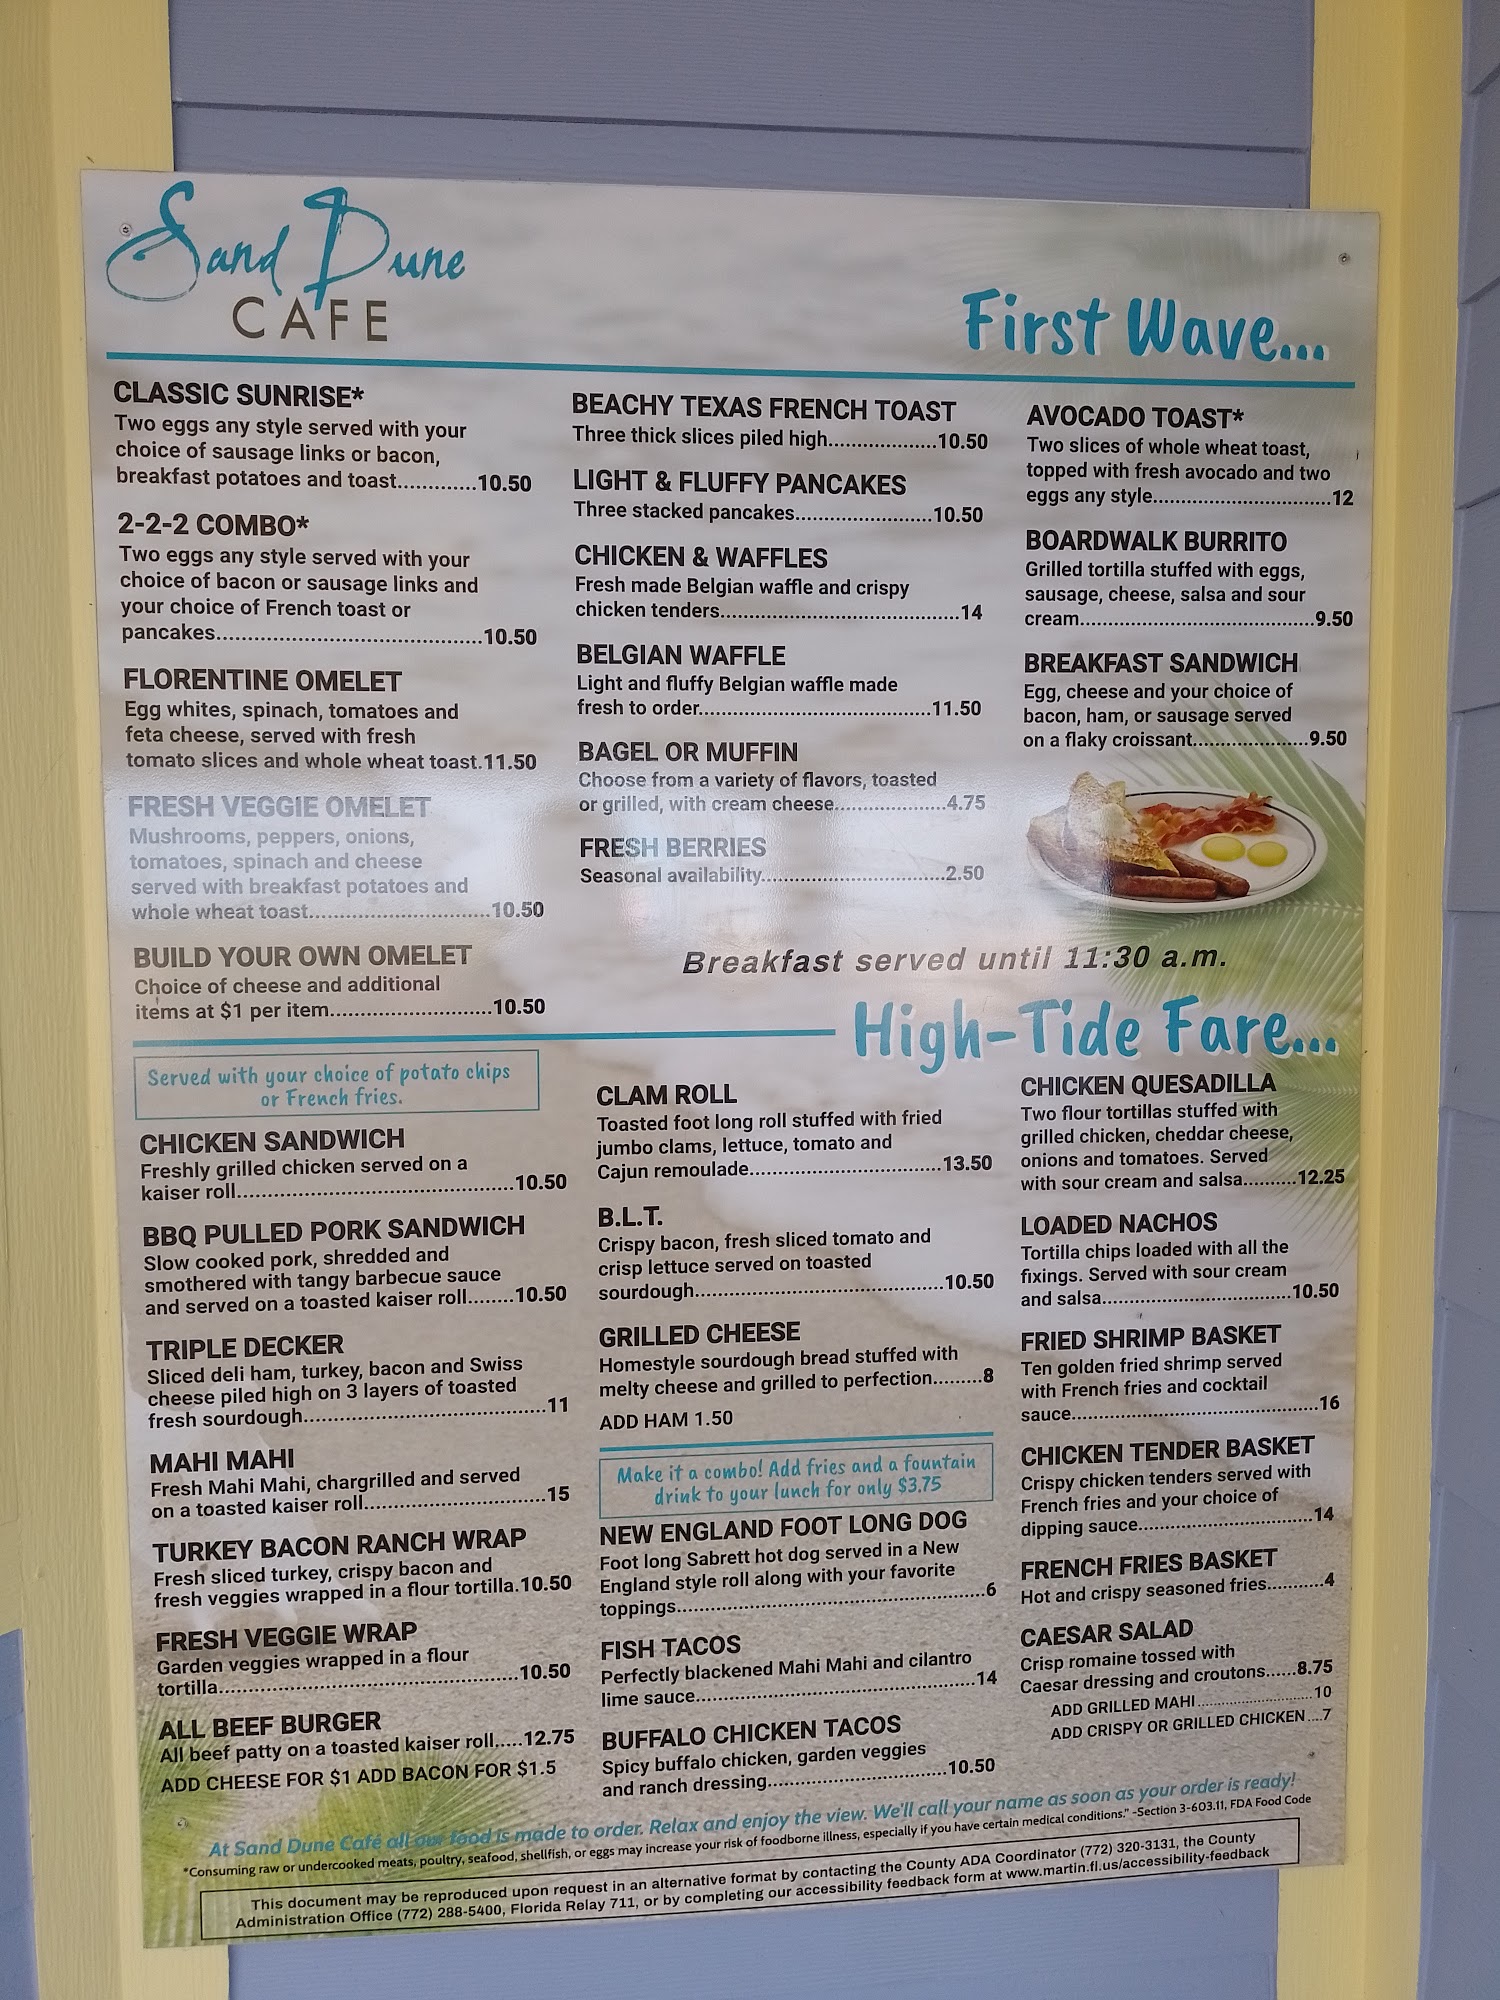 Sand Dune
CAFE
First Wave...
CLASSIC SUNRISE*
Two eggs any style served with your
choice of sausage links or bacon,
breakfast potatoes and toast.............10.50
2-2-2 COMBO*
Two eggs any style served with your
choice of bacon or sausage links and
your choice of French toast or
pancakes...........................................10.50
FLORENTINE OMELET
Egg whites, spinach, tomatoes and
feta cheese, served with fresh
tomato slices and whole wheat toast.11.50
FRESH VEGGIE OMELET
Mushrooms, peppers, onions,
tomatoes, spinach and cheese
served with breakfast potatoes and
whole wheat toast.............................10.50
BUILD YOUR OWN OMELET
Choice of cheese and additional
items at $1 per item..........................10.50
BEACHY TEXAS FRENCH TOAST
Three thick slices piled high..................10.50
LIGHT & FLUFFY PANCAKES
Three stacked pancakes.......................10.50
CHICKEN & WAFFLES
Fresh made Belgian waffle and crispy
chicken tenders.......................................14
BELGIAN WAFFLE
Light and fluffy Belgian waffle made
fresh to order......................................11.50
BAGEL OR MUFFIN
Choose from a variety of flavors, toasted
or grilled, with cream cheese..................4.75
FRESH BERRIES
Seasonal availability..............................2.50
AVOCADO TOAST*
Two slices of whole wheat toast,
topped with fresh avocado and two
eggs any style.............................12
BOARDWALK BURRITO
Grilled tortilla stuffed with eggs,
sausage, cheese, salsa and sour
cream......................................9.50
BREAKFAST SANDWICH
Egg, cheese and your choice of
bacon, ham, or sausage served
on a flaky croissant...................9.50
Breakfast served until 11:30 a.m.
High-Tide Fare...
Served with your choice of potato chips
or French fries.
CHICKEN SANDWICH
Freshly grilled chicken served on a
kaiser roll.............................................10.50
BBQ PULLED PORK SANDWICH
Slow cooked pork, shredded and
smothered with tangy barbecue sauce
and served on a toasted kaiser roll........10.50
TRIPLE DECKER
Sliced deli ham, turkey, bacon and Swiss
cheese piled high on 3 layers of toasted
fresh sourdough.......................................11
MAHI MAHI
Fresh Mahi Mahi, chargrilled and served
on a toasted kaiser roll.............................15
TURKEY BACON RANCH WRAP
Fresh sliced turkey, crispy bacon and
fresh veggies wrapped in a flour tortilla.10.50
FRESH VEGGIE WRAP
Garden veggies wrapped in a flour
tortilla.................................................10.50
ALL BEEF BURGER
All beef patty on a toasted kaiser roll.....12.75
ADD CHEESE FOR $1 ADD BACON FOR $1.5
CLAM ROLL
Toasted foot long roll stuffed with fried
jumbo clams, lettuce, tomato and
Cajun remoulade...............................13.50
B.L.T.
Crispy bacon, fresh sliced tomato and
crisp lettuce served on toasted
sourdough........................................10.50
GRILLED CHEESE
Homestyle sourdough bread stuffed with
melty cheese and grilled to perfection.........8
ADD HAM 1.50
Make it a combo! Add fries and a fountain
drink to your lunch for only $3.75
NEW ENGLAND FOOT LONG DOG
Foot long Sabrett hot dog served in a New
England style roll along with your favorite
toppings..................................................6
FISH TACOS
Perfectly blackened Mahi Mahi and cilantro
lime sauce..............................................14
BUFFALO CHICKEN TACOS
Spicy buffalo chicken, garden veggies
and ranch dressing.............................10.50
CHICKEN QUESADILLA
Two flour tortillas stuffed with
grilled chicken, cheddar cheese,
onions and tomatoes. Served
with sour cream and salsa.........12.25
LOADED NACHOS
Tortilla chips loaded with all the
fixings. Served with sour cream
and salsa...............................10.50
FRIED SHRIMP BASKET
Ten golden fried shrimp served
with French fries and cocktail
sauce.........................................16
CHICKEN TENDER BASKET
Crispy chicken tenders served with
French fries and your choice of
dipping sauce.............................14
FRENCH FRIES BASKET
Hot and crispy seasoned fries..........4
CAESAR SALAD
Crisp romaine tossed with
Caesar dressing and croutons......8.75
ADD GRILLED MAHI..........................10
ADD CRISPY OR GRILLED CHICKEN....7
At Sand Dune Café all our food is made to order. Relax and enjoy the view. We'll call your name as soon as your order is ready!
*Consuming raw or undercooked meats, poultry, seafood, shellfish, or eggs may increase your risk of foodborne illness, especially if you have certain medical conditions." -Section 3-603.11, FDA Food Code
This document may be reproduced upon request in an alternative format by contacting the County ADA Coordinator (772) 320-3131, the County
Administration Office (772) 288-5400, Florida Relay 711, or by completing our accessibility feedback form at www.martin.fl.us/accessibility-feedback